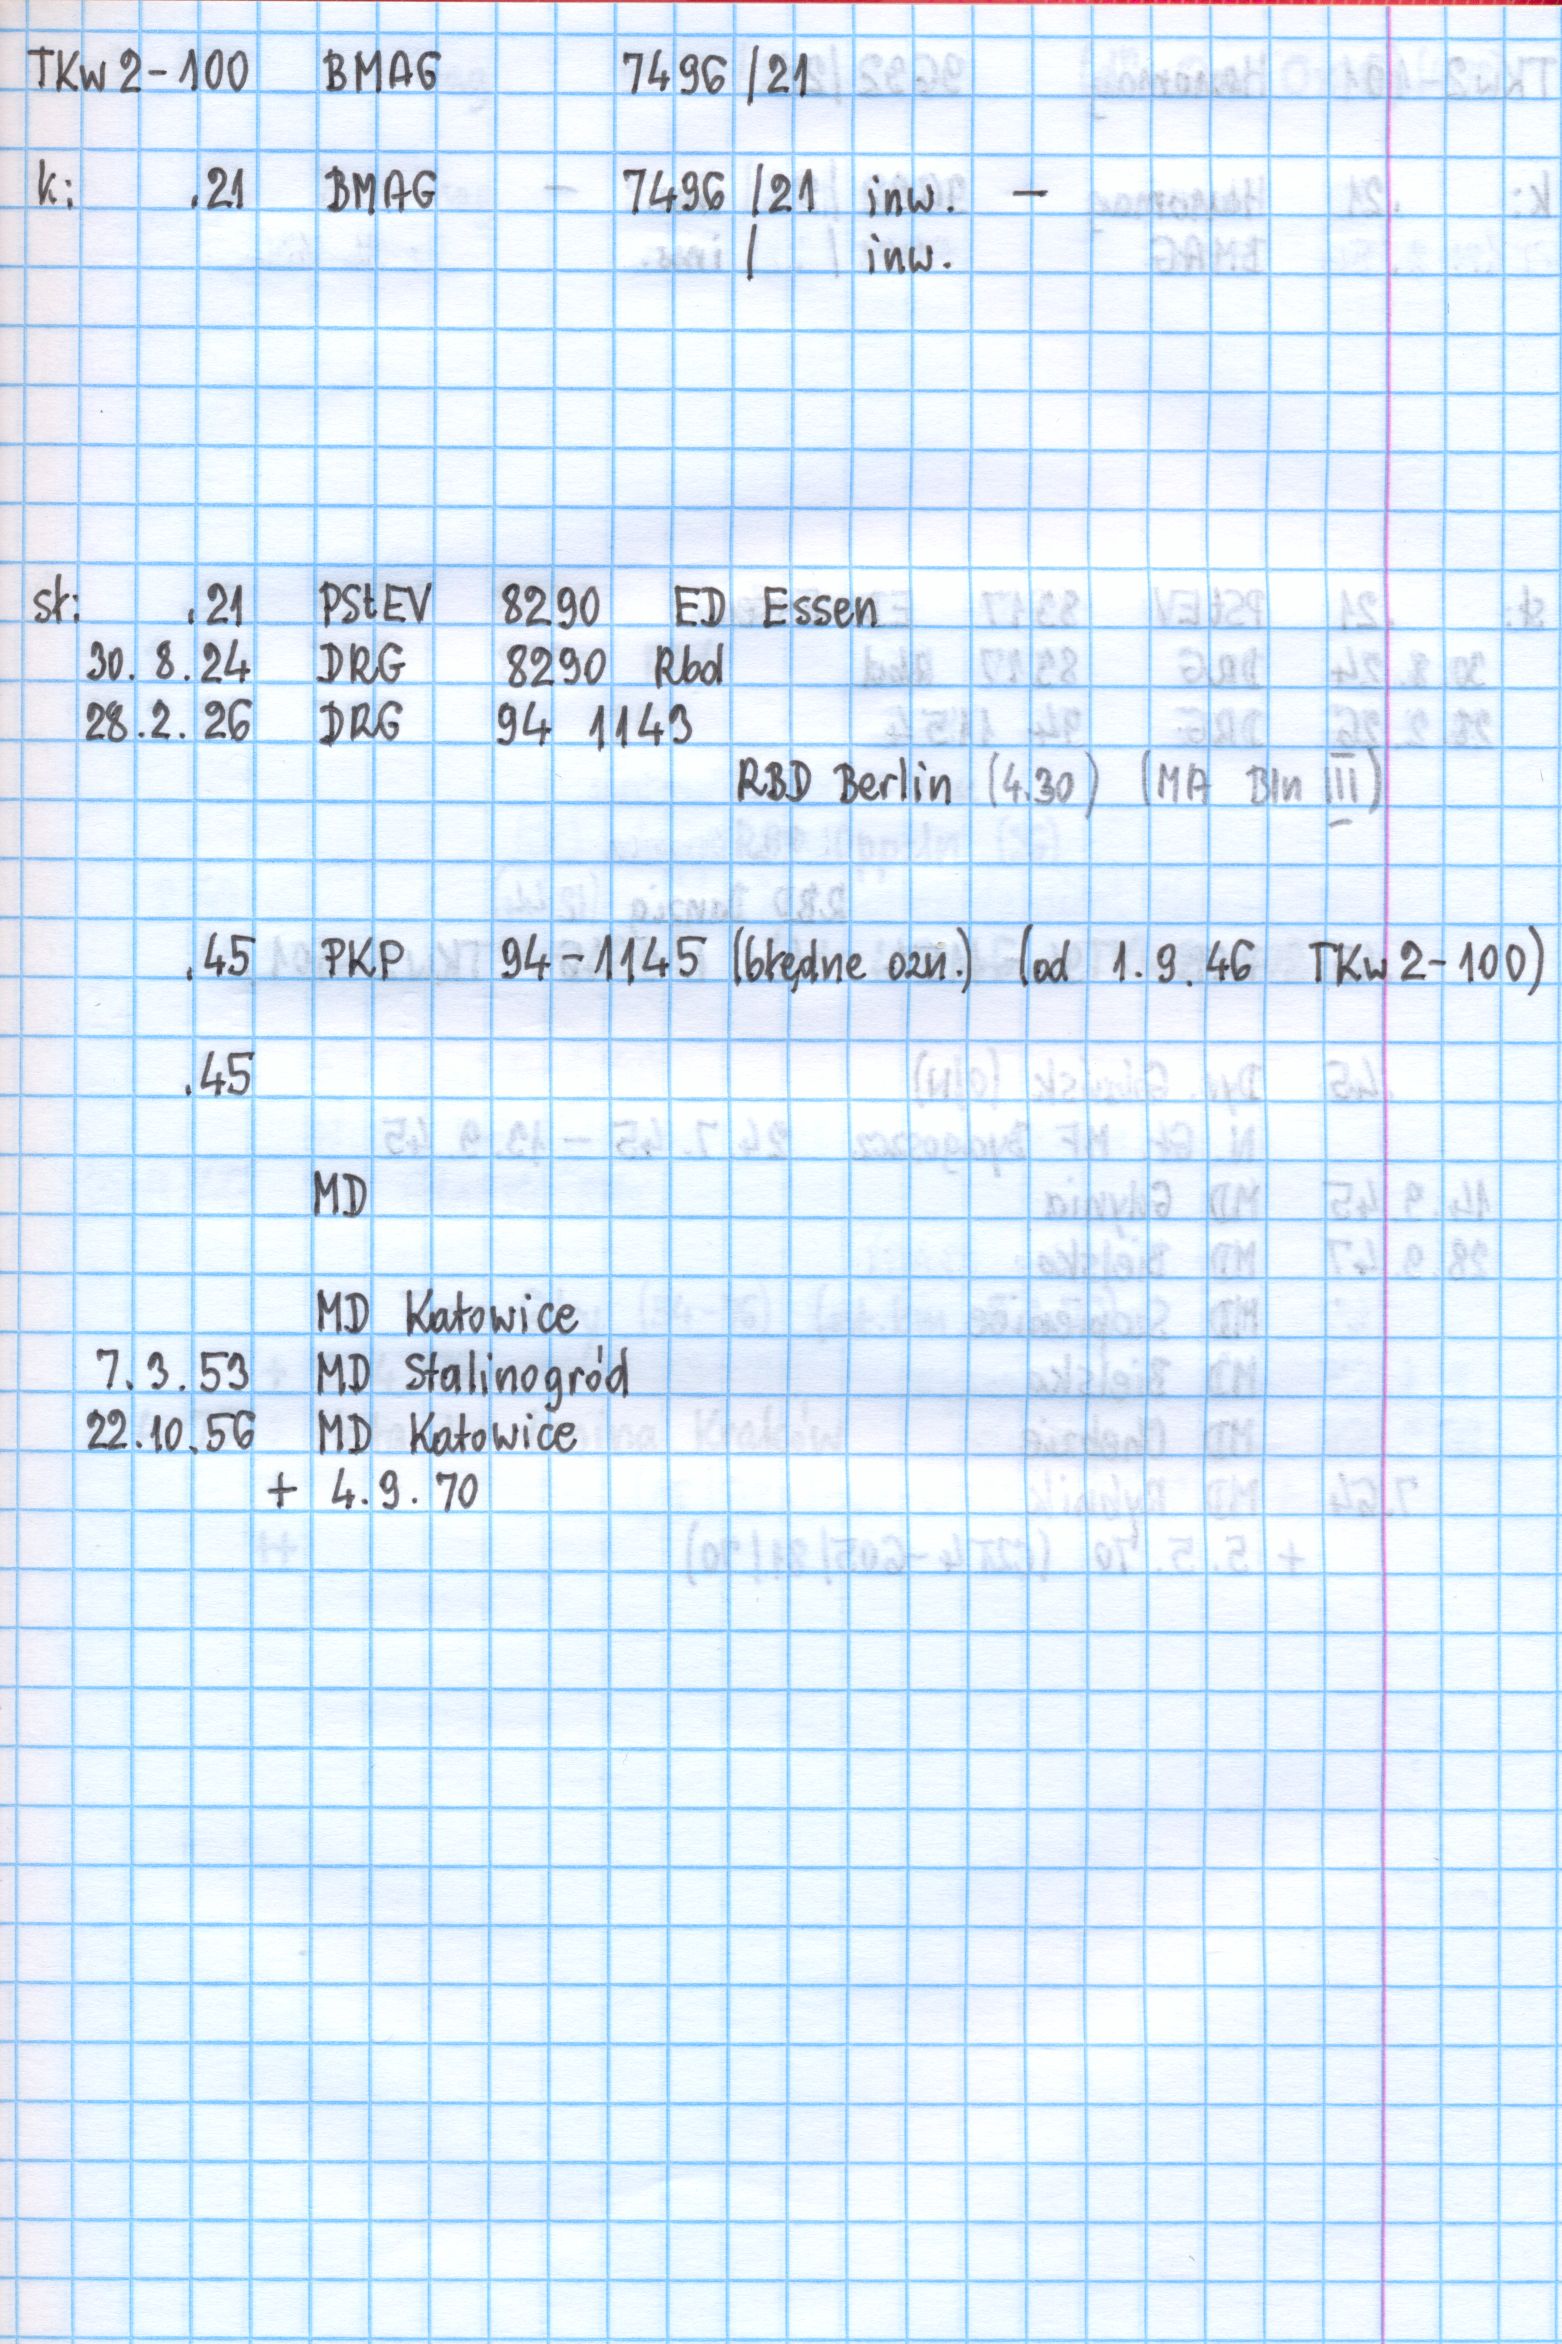 TKw 2-100 BMAG 7496 /21
k: .21 BMAG - 7496 /21 inw. -
/ inw.
st: .21 PStEV 8290 ED Essen
30.8.24 DRG 8290 Rbd
28.2.26 DRG 94 1143
RBD Berlin (4.30) (MA Bln III)
.45 PKP 94-1145 (błędne ozn.) (od 1.9.46 TKw 2-100)
.45
MD
MD Katowice
7.3.53 MD Stalinogród
22.10.56 MD Katowice
+ 4.9.70